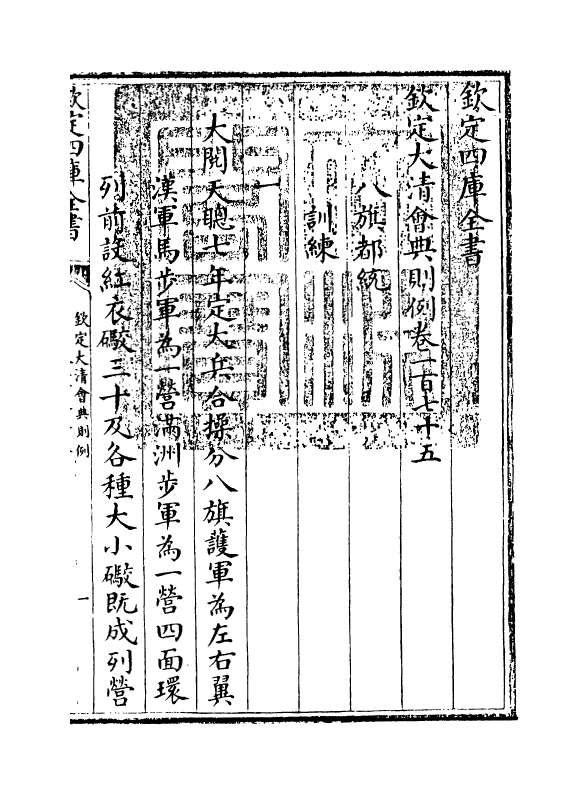 欽定四庫全書
欽定大清會典則例卷一百七十五
八旗都統
訓練
一
大閱天聰七年定大兵合操分八旗䕶軍為左右翼
漢軍馬步軍為一營滿洲步軍為一營四面環
列前設紅衣礮三十及各種大小礮既成列營
欽定四庫全書
欽定大清會典則例
一